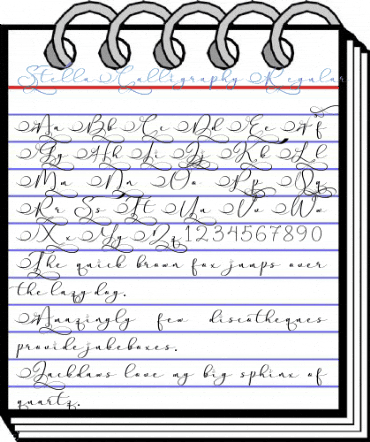 Stella Calligraphy Regular
Aa Bb Cc Dd Ee Ff
Gg Hh Ii Jj Kk Ll
Mm Nn Oo Pp Qq
Rr Ss Tt Uu Vv Ww
Xx Yy Zz 1234567890
The quick brown fox jumps over
the lazy dog.
Amazingly few discotheques
provide jukeboxes.
Jackdaws love my big sphinx of
quartz.